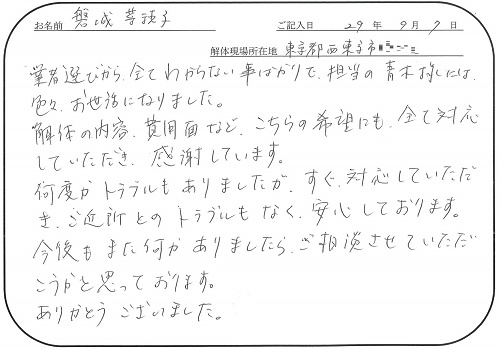 お名前 ご記入日 29年 9月 7日
解体現場所在地 東京都西東京市
業者選びから、全てわからない事ばかりで、担当の青木様には、
色々、お世話になりました。
解体の内容、費用面など、こちらの希望にも、全て対応
していただき、感謝しています。
何度かトラブルもありましたが、すぐ、対応していただ
き、ご近所とのトラブルもなく、安心しております。
今後もまた何かありましたら、ご相談させていただ
こうかと思っております。
ありがとうございました。